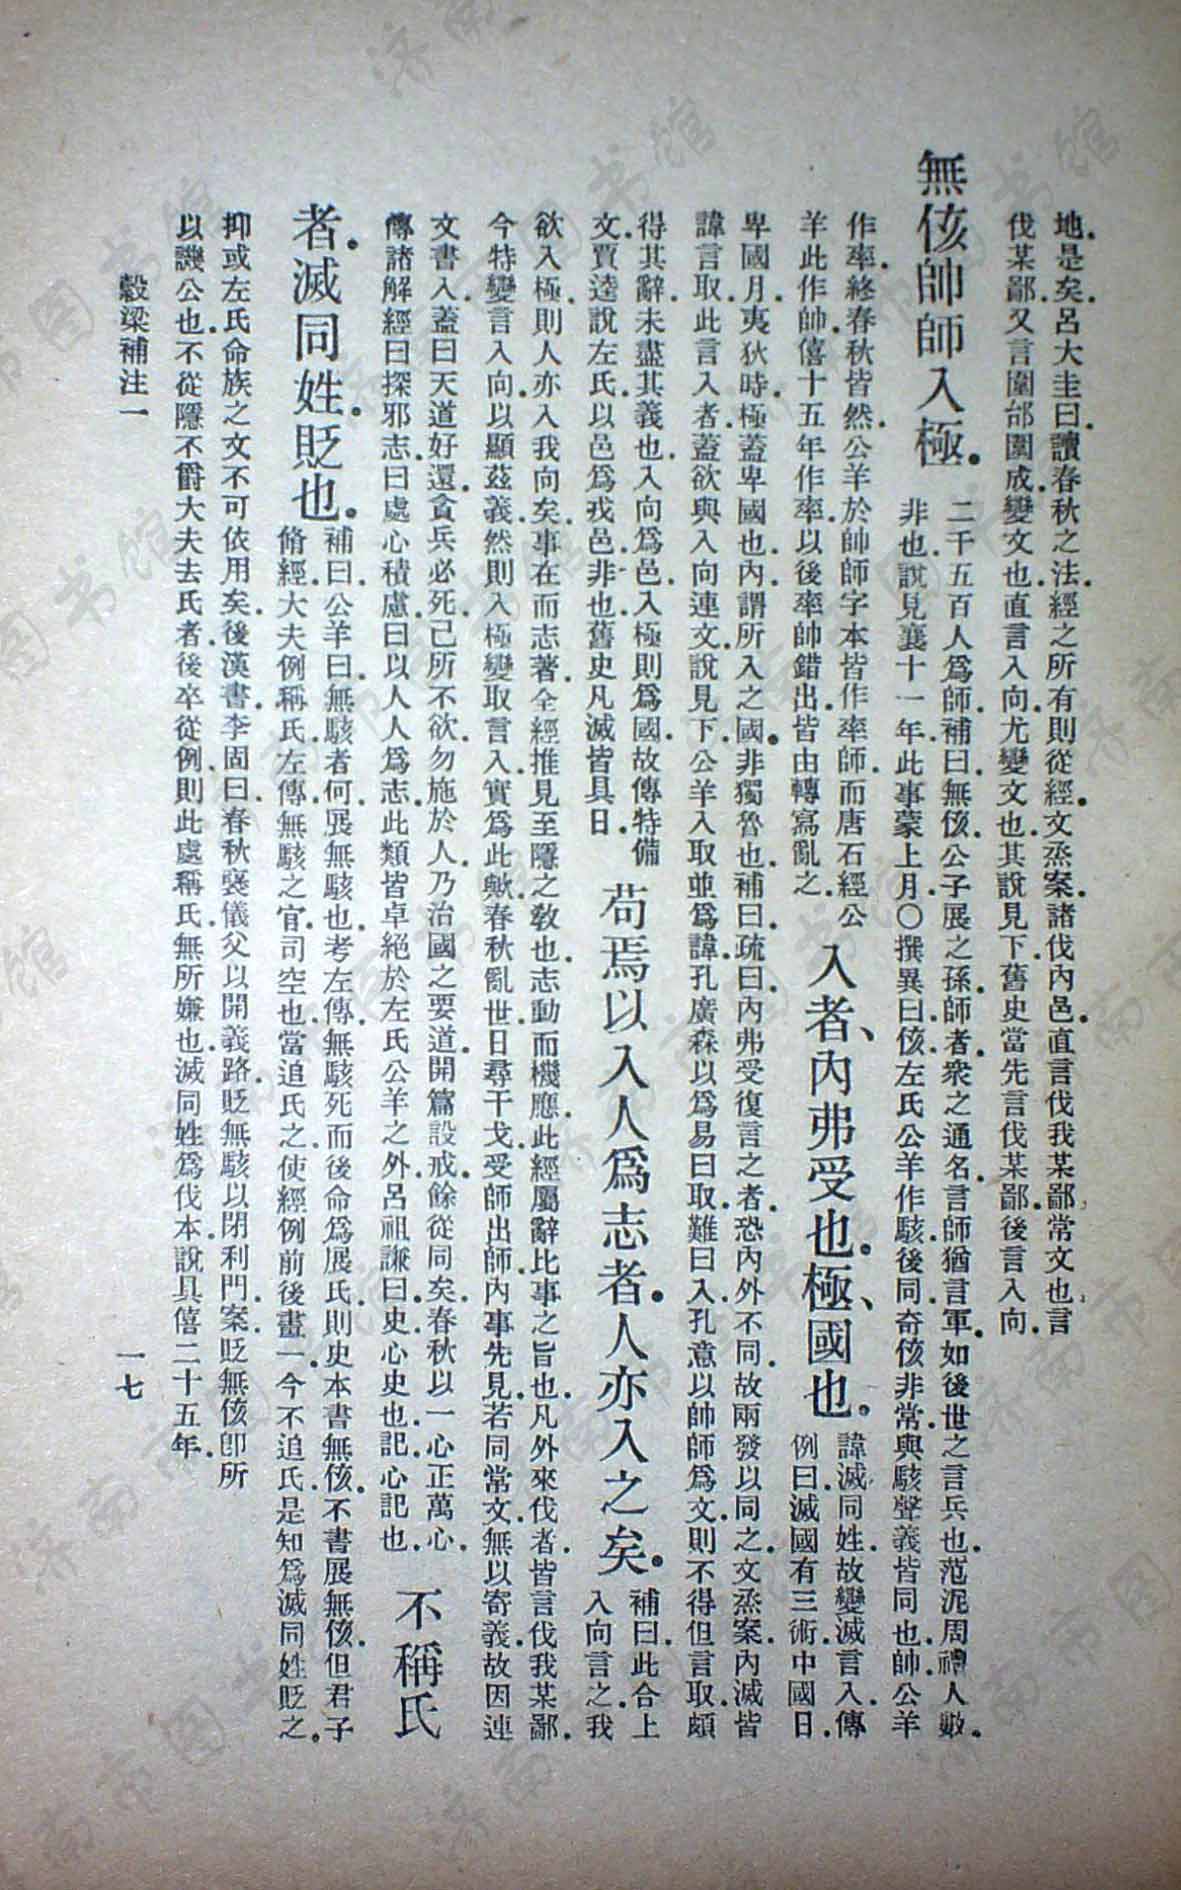 地是矣。呂大圭曰。讀春秋之法。經之所有則從經。文烝案。諸伐內邑。直言伐我某鄙。常文也。言
伐某鄙。又言圍郃圍成。變文也。直言入向。尤變文也。其說見下。舊史當先言伐某鄙。後言入向。
無侅帥師入極。
二千五百人爲師。補曰。無侅。公子展之孫。師者。衆之通名。言師猶言軍。如後世之言兵也。范泥周禮人數。
非也。說見襄十一年。此事蒙上月。○撰異曰。侅。左氏公羊作駭。後同。奇侅非常。與駭聲義皆同也。帥。公羊
作率。終春秋皆然。公羊於帥師字本皆作率師。而唐石經公
羊此作帥。僖十五年作率。以後率帥錯出。皆由轉寫亂之。
入者、內弗受也。極、國也。
諱滅同姓。故變滅言入。傳
例曰。滅國有三術。中國日。
卑國月。夷狄時。極蓋卑國也。內。謂所入之國。非獨魯也。補曰。疏曰。內弗受復言之者。恐內外不同。故兩發以同之。文烝案。內滅皆
諱言取。此言入者。蓋欲與入向連文。說見下。公羊入取並爲諱。孔廣森以爲易曰取。難曰入。孔意以帥師爲文。則不得但言取。頗
得其辭。未盡其義也。入向爲邑。入極則爲國。故傳特備
文。賈逵說左氏。以邑爲戎邑。非也。舊史凡滅皆具日。
苟焉以入人爲志者。人亦入之矣。
補曰。此合上
入向言之。我
欲入極。則人亦入我向矣。事在而志著。全經推見至隱之敎也。志動而機應。此經屬辭比事之旨也。凡外來伐者。皆言伐我某鄙。
今特變言入向。以顯茲義。然則入極變取言入。實爲此歟。春秋亂世。日尋干戈。受師出師。內事先見。若同常文。無以寄義。故因連
文書入。蓋曰天道好還。貪兵必死。己所不欲。勿施於人。乃治國之要道。開篇設戒。餘從同矣。春秋以一心正萬心。
傳諸解經。曰探邪志。曰處心積慮。曰以人人爲志。此類皆卓絕於左氏公羊之外。呂祖謙曰。史。心史也。記。心記也。
不稱氏
者。滅同姓。貶也。
補曰。公羊曰。無駭者何。展無駭也。考左傳。無駭死而後命爲展氏。則史本書無侅。不書展無侅。但君子
脩經。大夫例稱氏。左傳。無駭之官。司空也。當追氏之。使經例前後畫一。今不追氏。是知爲滅同姓貶之。
抑或左氏命族之文不可依用矣。後漢書。李固曰。春秋襃儀父以開義路。貶無駭以閉利門。案。貶無侅卽所
以譏公也。不從隱不爵大夫去氏者。後卒從例。則此處稱氏無所嫌也。滅同姓爲伐本。說具僖二十五年。
穀梁補注一
一七